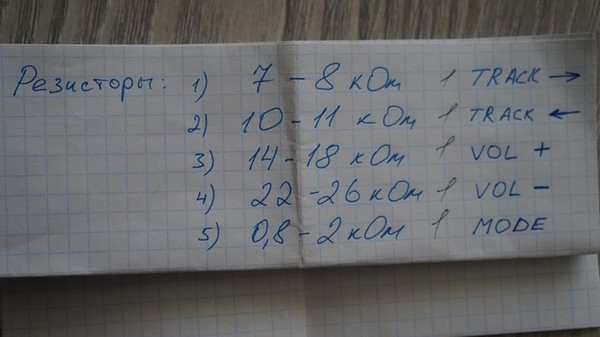 Резисторы: 1) 7 – 8 кОм 1 TRACK →
2) 10 – 11 кОм 1 TRACK ←
3) 14 – 18 кОм 1 VOL +
4) 22 – 26 кОм 1 VOL –
5) 0,8 – 2 кОм 1 MODE